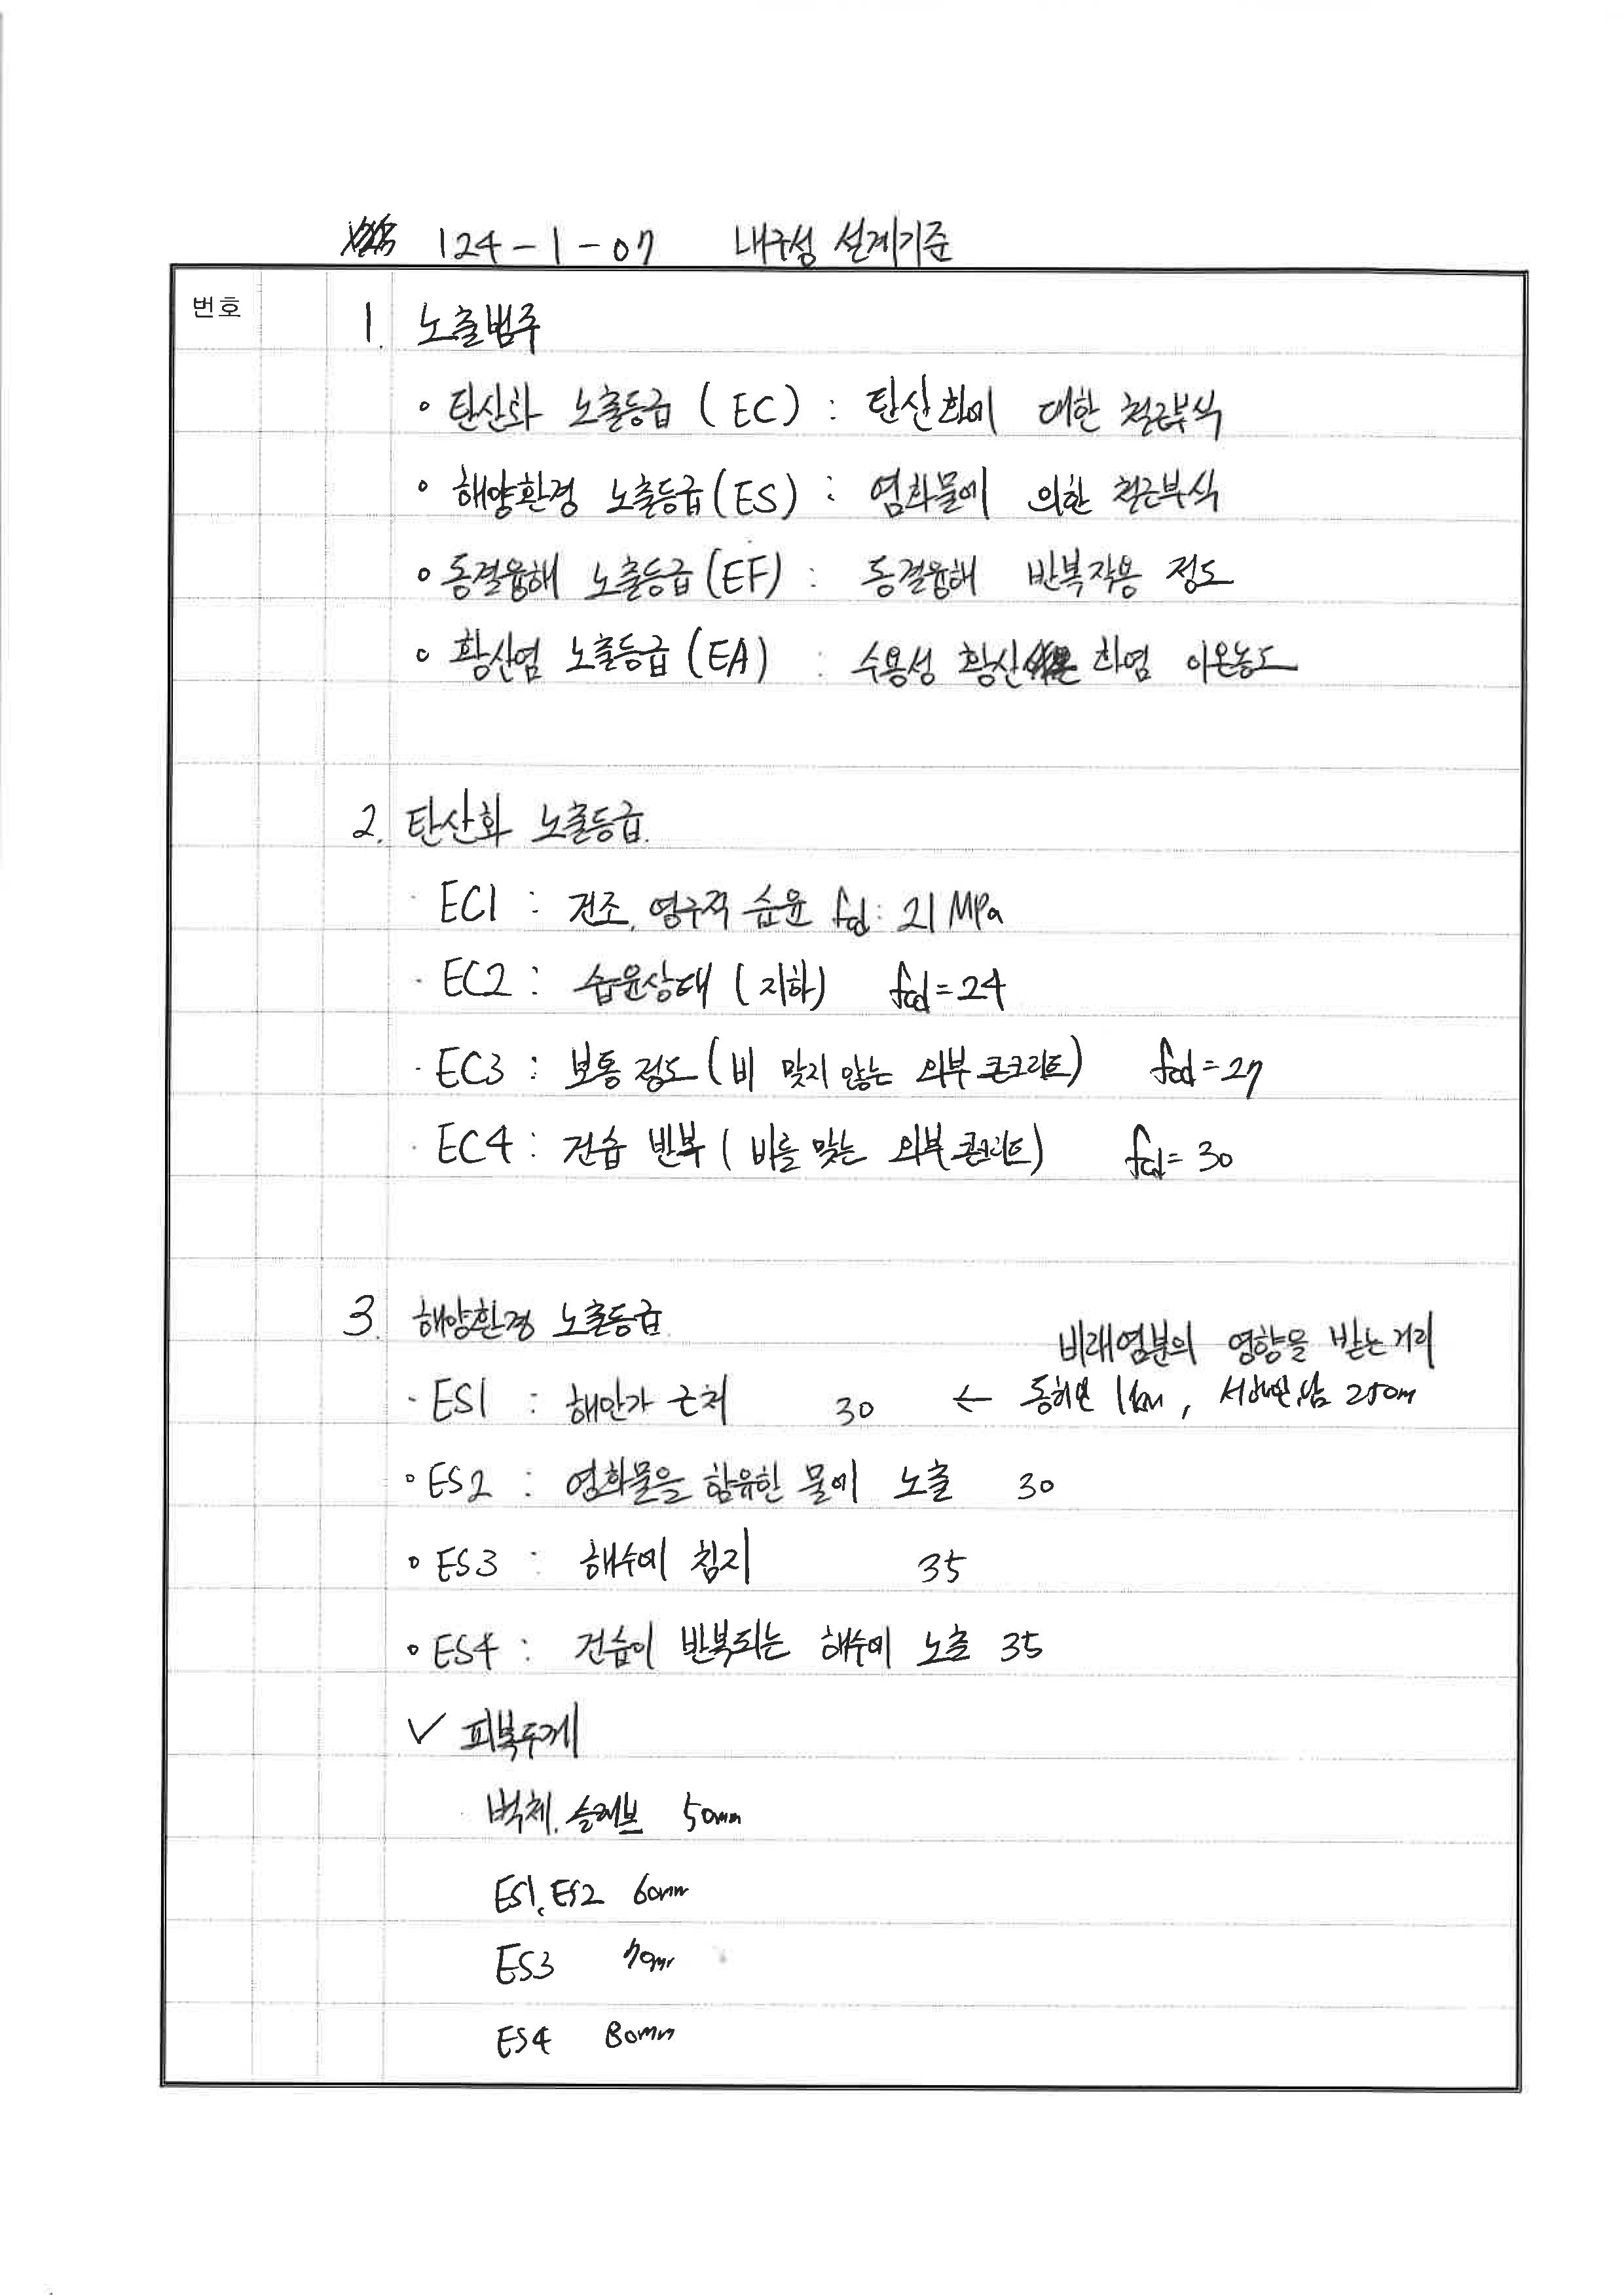 124-1-07 내구성 설계기준
번호
1. 노출범주
∘ 탄산화 노출등급 (EC) : 탄산화에 대한 철근부식
∘ 해양환경 노출등급(ES) : 염화물에 의한 철근부식
∘ 동결융해 노출등급(EF) : 동결융해 반복작용 정도
∘ 황산염 노출등급(EA) : 수용성 황산 화염 이온농도
2. 탄산화 노출등급.
· EC1 : 건조, 영구적 습윤 fcd : 21 MPa
· EC2 : 습윤상태 (지하) fcd = 24
· EC3 : 보통 정도 (비 맞지 않는 외부 콘크리트) fcd = 27
· EC4 : 건습 반복 (비를 맞는 외부 콘크리트) fcd = 30
3. 해양환경 노출등급
비래염분의 영향을 받는 거리
· ES1 : 해안가 근처 30 ← 동해면 1km, 250m
∘ ES2 : 염화물을 함유한 물에 노출 30
∘ ES3 : 해수에 침지 35
∘ ES4 : 건습이 반복되는 해수에 노출 35
✓ 피복두께
벽체, 슬래브 50mm
ES1, ES2 60mm
ES3 70mm
ES4 80mm